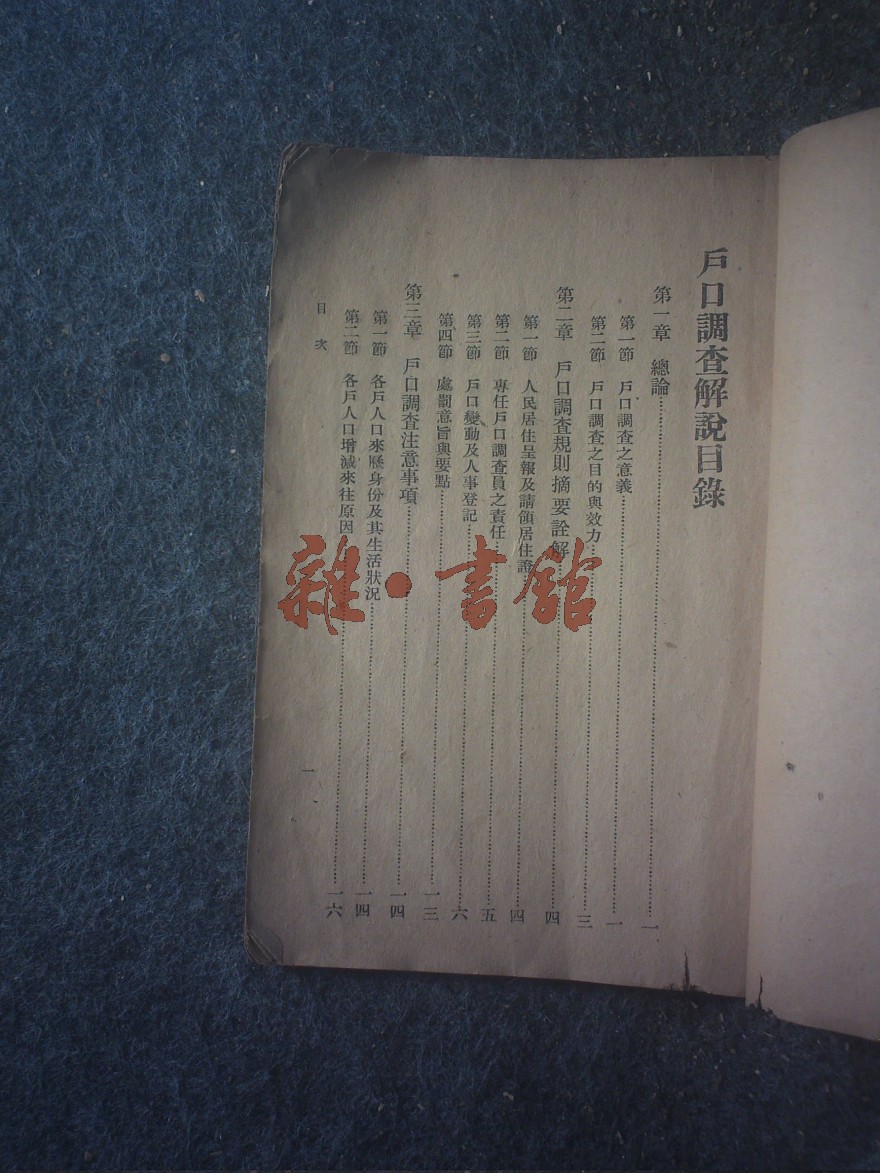 戶口調查解說目錄
第一章 總論…………一
第一節 戶口調查之意義…………一
第二節 戶口調查之目的與效力…………三
第二章 戶口調查規則摘要詮解…………四
第一節 人民居住呈報及請領居住證…………四
第二節 專任戶口調查員之責任…………五
第三節 戶口變動及人事登記…………六
第四節 處罰意旨與要點…………一三
第三章 戶口調查注意事項…………一四
第一節 各戶人口來歷身份及其生活狀況…………一四
第二節 各戶人口增減來往原因…………一六
目次
一
雜·書館